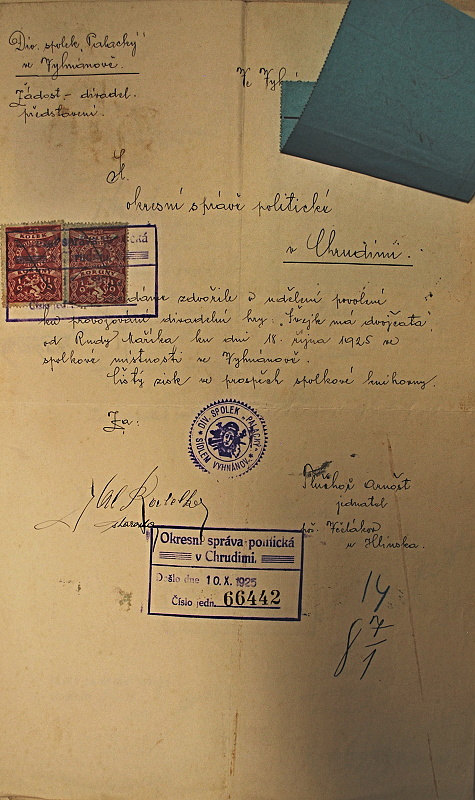 Div. spolek „Palacký"
ve Vyhnánově.
Žádost - divadel.
představení.
Ve
K.
okresní správě politické
v Chrudimi.
KOLEK
KORUNY
KORUNY
zdvořile o udělení povolení
ku provozování divadelní hry: „Švejk má dvojčata"
od Rudy Maříka ku dni 18. října 1925 ve
spolkové místnosti ve Vyhnánově.
Čistý zisk ve prospěch spolkové knihovny.
Za:
DIV. SPOLEK „PALACKÝ"
SÍDLEM VYHNÁNOV.
starosta
Arnošt
jednatel
u Hlinska.
Okresní správa politická
v Chrudimi.
Došlo dne 10.X.1925
Číslo jedn. 66442
14
8 7/1